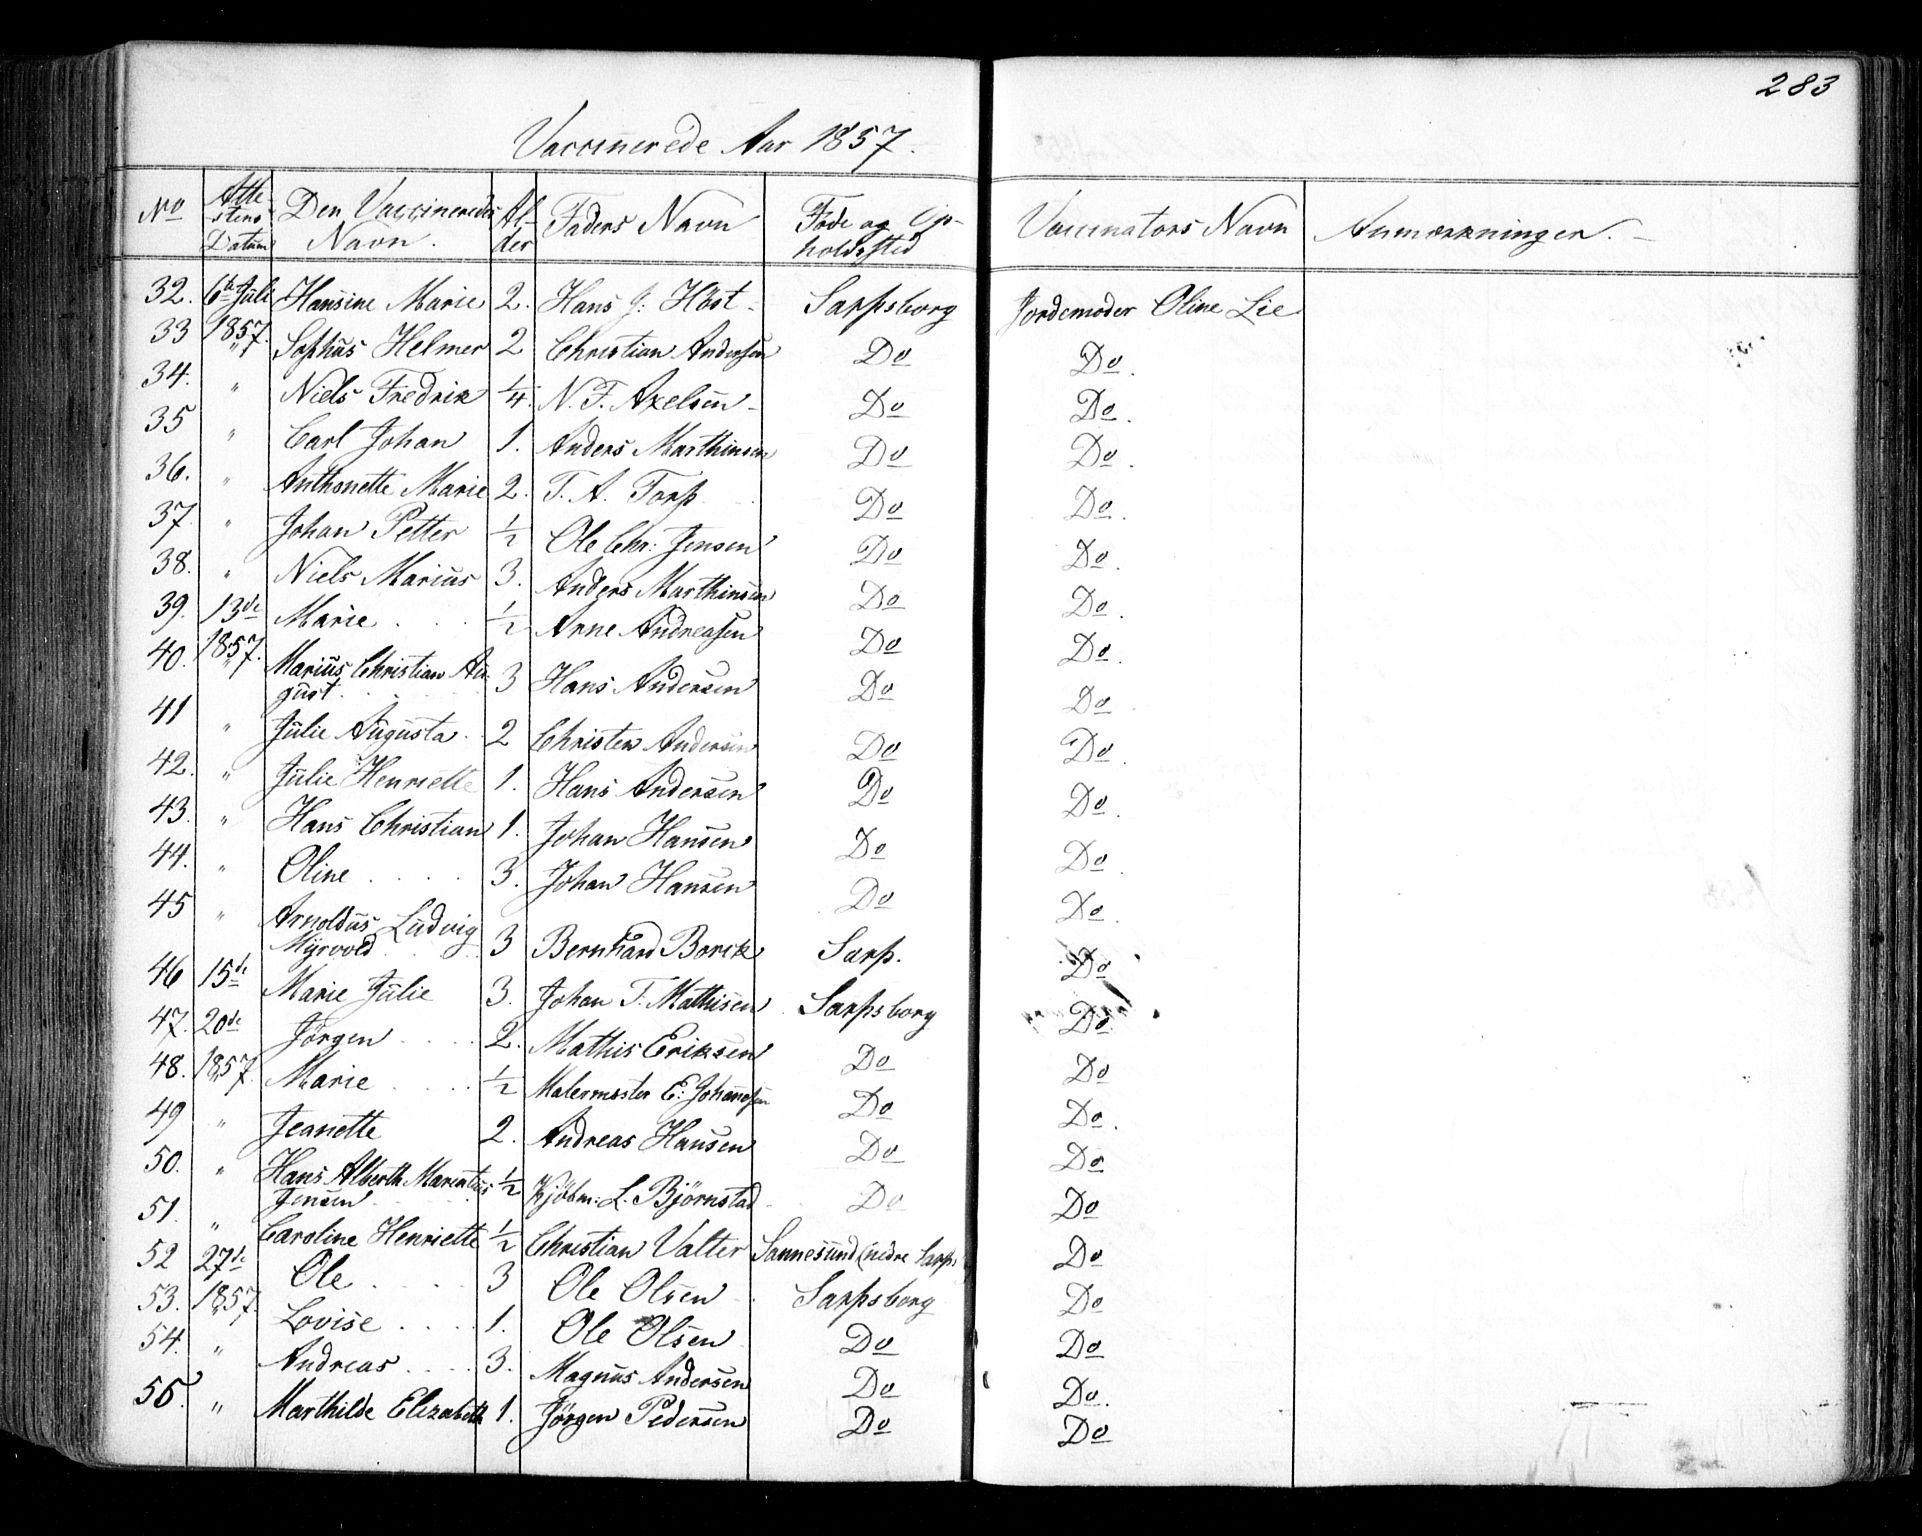 283
Vaccinerede Aar 1857.
No Attestens Datum Den Vaccineredes Navn. Alder Faders Navn Føde og Opholdssted Vaccinators Navn Anmærkninger.
32. 6te Juli Hansine Marie 2. Hans J: Höst Sarpsborg Jordemoder Oline Lie
33 1857. " Sophus Helmer 2 Christian Andersen Do Do.
34. " Niels Fredrik 1/4. N. F. Axelsen Do Do.
35 " Carl Johan 1. Anders Marthinsen Do Do.
36. " Anthonette Marie 2. T. A. Torp Do Do.
37. " Johan Petter 1/2 Ole Chr: Jensen Do Do.
38. " Niels Marius 3. Anders Marthinsen Do Do.
39. 13de Marie 1/2 Arne Andreasen Do Do.
40. 1857. " Marius Christian August 3 Hans Andersen Do Do.
41 " Julie Augusta 2 Christen Andersen Do Do.
42. " Julie Henriette 1. Hans Andersen Do Do.
43. " Hans Christian 1. Johan Hansen Do Do.
44. " Oline 3. Johan Hansen Do Do.
45 " Arnoldus Ludvig Myrvold 3 Bernhard Borck Sarp. Do
46 15de Marie Julie 3. Johan T. Mathisen Sarpsborg Do
47. 20de Jörgen 2. Mathis Eriksen Do Do
48. 1857. " Marie 1/2 Malermester E: Johannesen Do Do.
49 " Jeanette 2. Andreas Hansen Do Do
50. " Hans Alberth Marentius Jensen 1/2 Kjöbm: L. Björnstad Do Do
51. " Caroline Henriette 1/2 Christian Valter Sannesund (nedre Sarps. Do
52 27de Ole 3 Ole Olsen Sarpsborg Do
53. 1857. " Lovise 1. Ole Olsen Do Do
54. " Andreas 3. Magnus Andersen Do Do.
55. " Marthilde Elizabeth 1. Jörgen Pedersen Do Do